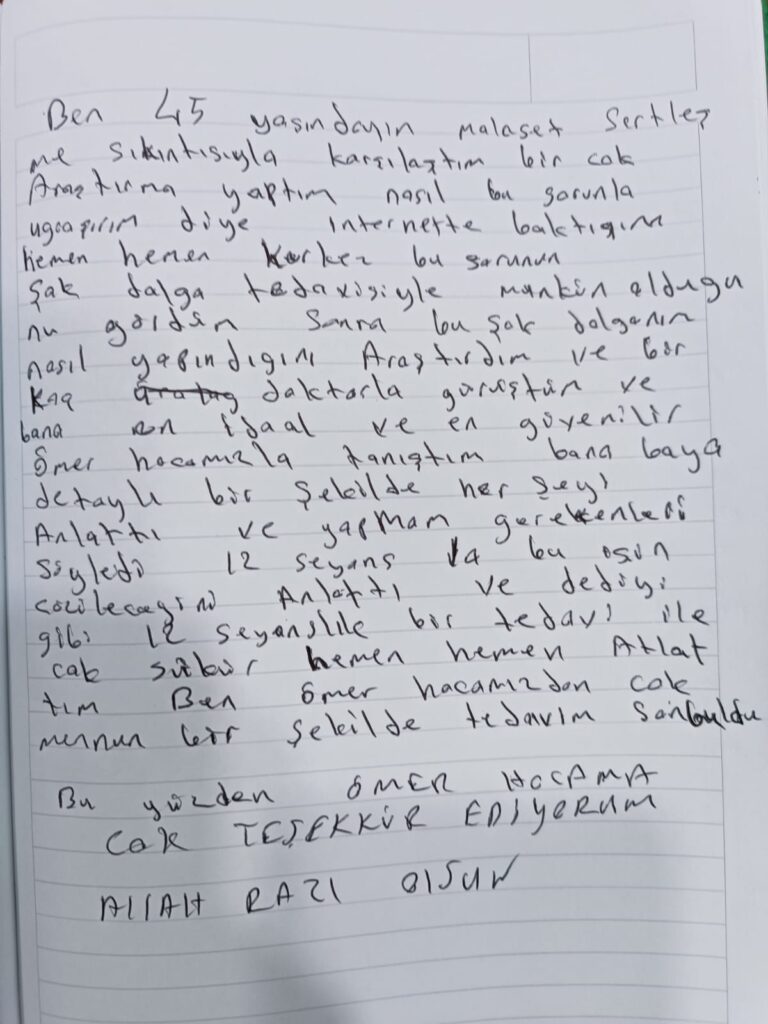 Ben 45 yasındayın malaset Sertleş
me sıkıntısıyla karşılaştım bir cok
Araştırma yaptım nasıl bu sorunla
diye internette baktıgım
hemen hemen bu sorunun
Şok dalga tedavisiyle mankün oldugu
nu gördüm Sonra bu şok dalganın
nasıl yapındıgını Araştırdım ve bir
kaq doktorla görüştün ve
bana en idaal ve en güvenilir
ömer hocamızla tanıştım bana baya
detaylı bir şekilde her şeyi
Anlattı ve yapmam gerekenleri
Söyledi 12 seyans da bu
cözülecegini Anlattı ve dediyi
gibi 12 seyanslile bir tedavi ile
cok sütkür hemen hemen Atlat
tım Ben ömer hocamızdan cok
memnun bir şekilde tedavim Sonbuldu
Bu yüzden ÖMER HOCAMA
COK TEŞEKKÜR EDİYORUM
AllAH RAZI OlSUN